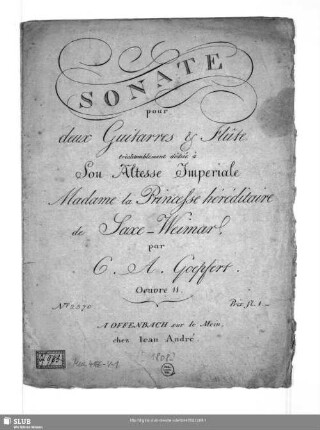 SONATE
pour
deux Guitarres & Flûte
trèshumblement dédiée à
Son Altesse Imperiale
Madame la Princesse héréditaire
de Saxe-Weimar
par
C. A. Goepfert.
Oeuvre 11.
Nº 2570 Prix fl. 1
A OFFENBACH sur le Mein,
chez Jean André
SLUB